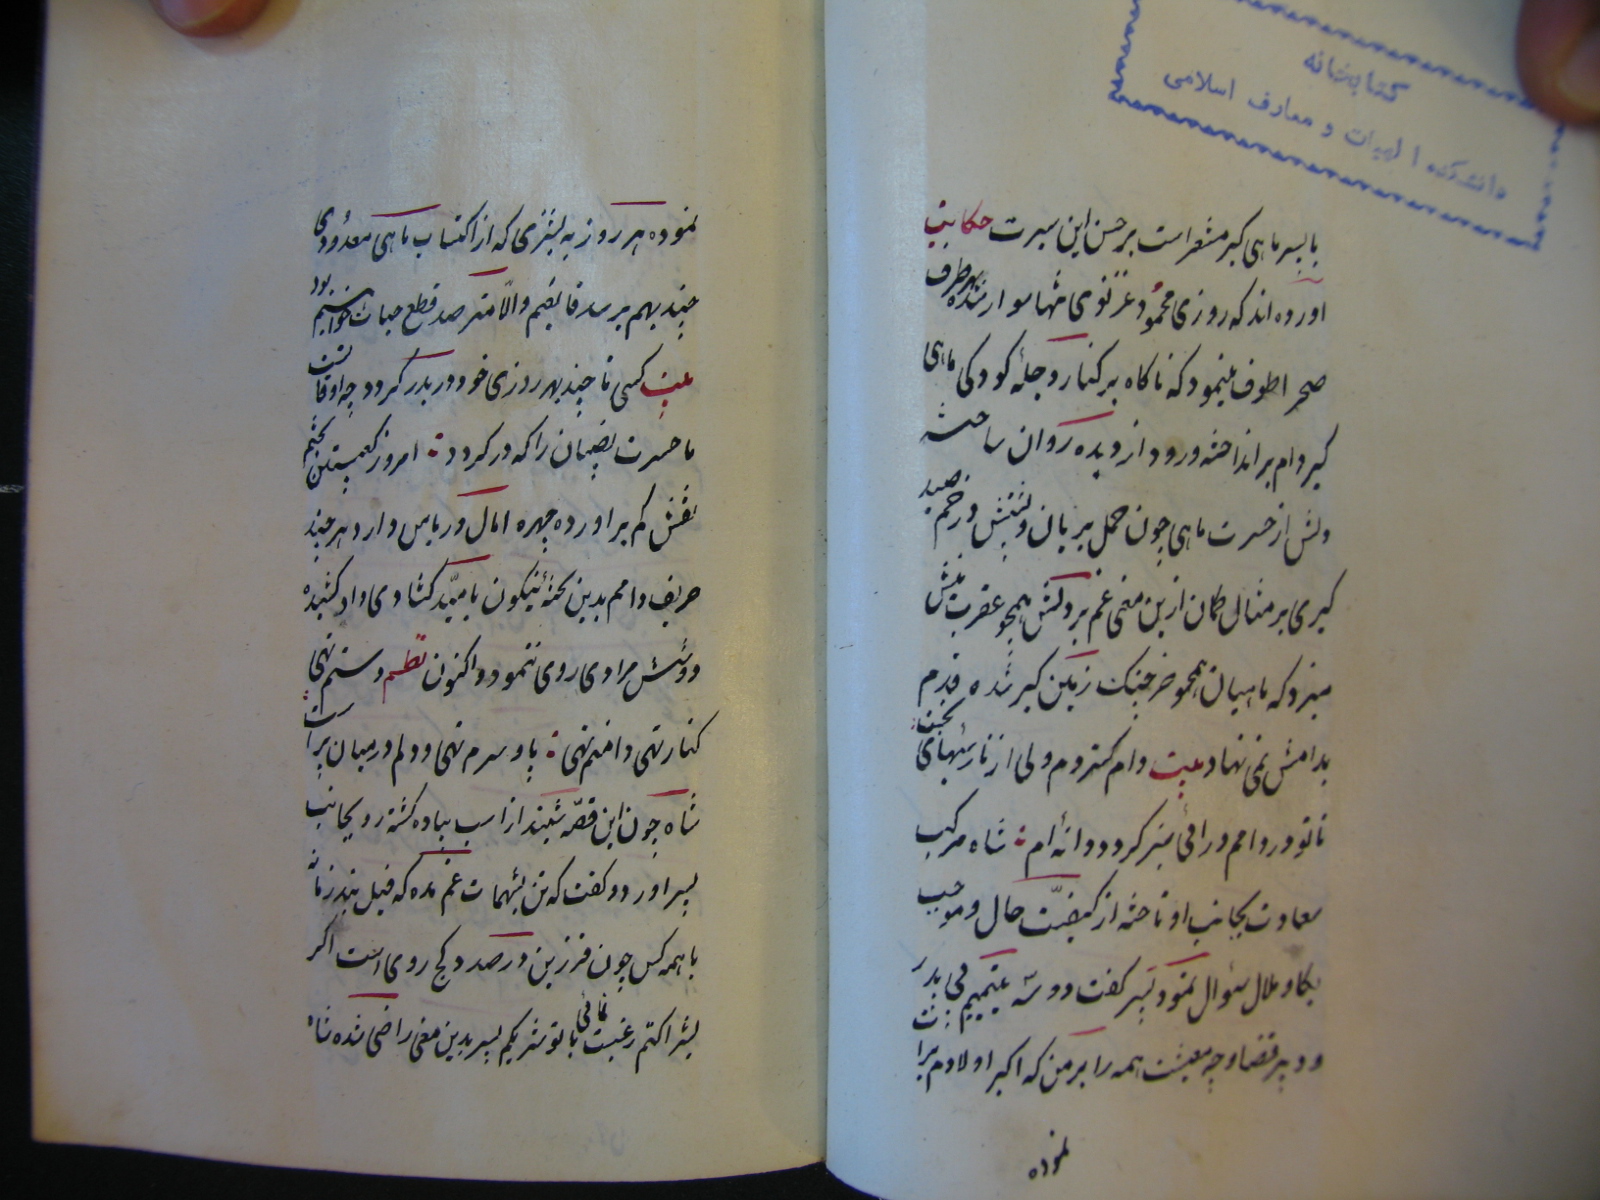 کتابخانه
دانشکده الهیات و معارف اسلامی
با پسر ماهی کیر مشعر است بر حسن این سیرت حکایت
اورده اند که روزی محمود غزنوی تنها سوار شده بهر طرف
صحرا طوف مینمود که ناکاه بر کنار دجله کودکی ماهی
کیر دام بر انداخته و رود از دیده روان ساخته
دلش از حسرت ماهی چون حمل بریان و پشتش در خم صید
کیری بر مثال کمان ازین معنی غم بر دلش همچو عقرب نیش
میزد که ماهیان همچو خرچنک زمین کیر شده قدم
بدامش نمی نهاد بیت دام کستردم ولی از نارسیهای بخت
تا تو در دامم درائی سبز کردد دانه ام شاه مرکب
معادت بجانب او تاخته از کیفیّت حال و موجب
بکا و ملال سئوال نمود پسر کفت دو سه یتیمیم بی پدر
و در پیر قضا وجه معیشت همه را بر من که اکبر اولادم برات
نموده
نموده هر روز به بیشتری که از اکتساب ماهی معدودی
چند بهم برسد قانعیم والّا مترصد قطع حیات خواهیم بود
بیت کسی تا چند بهر روزی خود در بدر کردد چه اوقات
ما حسرت نصیبان را که در کردد امروز کعبتین بختم
نقش کم بر اورده چهره امال در یاس دارد هر چند
حریف دامم بدین تخته نیلکون بامیّد کشادی داد کشیده
دوشش مرادی روی ننمود و اکنون نظم دستم تهی
کنار تهی دامنم تهی پا و سرم تهی و دلم در میان پر است
شاه چون این قصّه شنید از اسب پیاده کشته رو بجانب
پسر اورد و کفت که تن بشهمات غم مده که فیل بند زمانه
با همه کس چون فرزین در صدد کج روی است اکر
بشراکتم رغبت نمائی با تو شریکم پسر بدین معنی راضی شده شاه